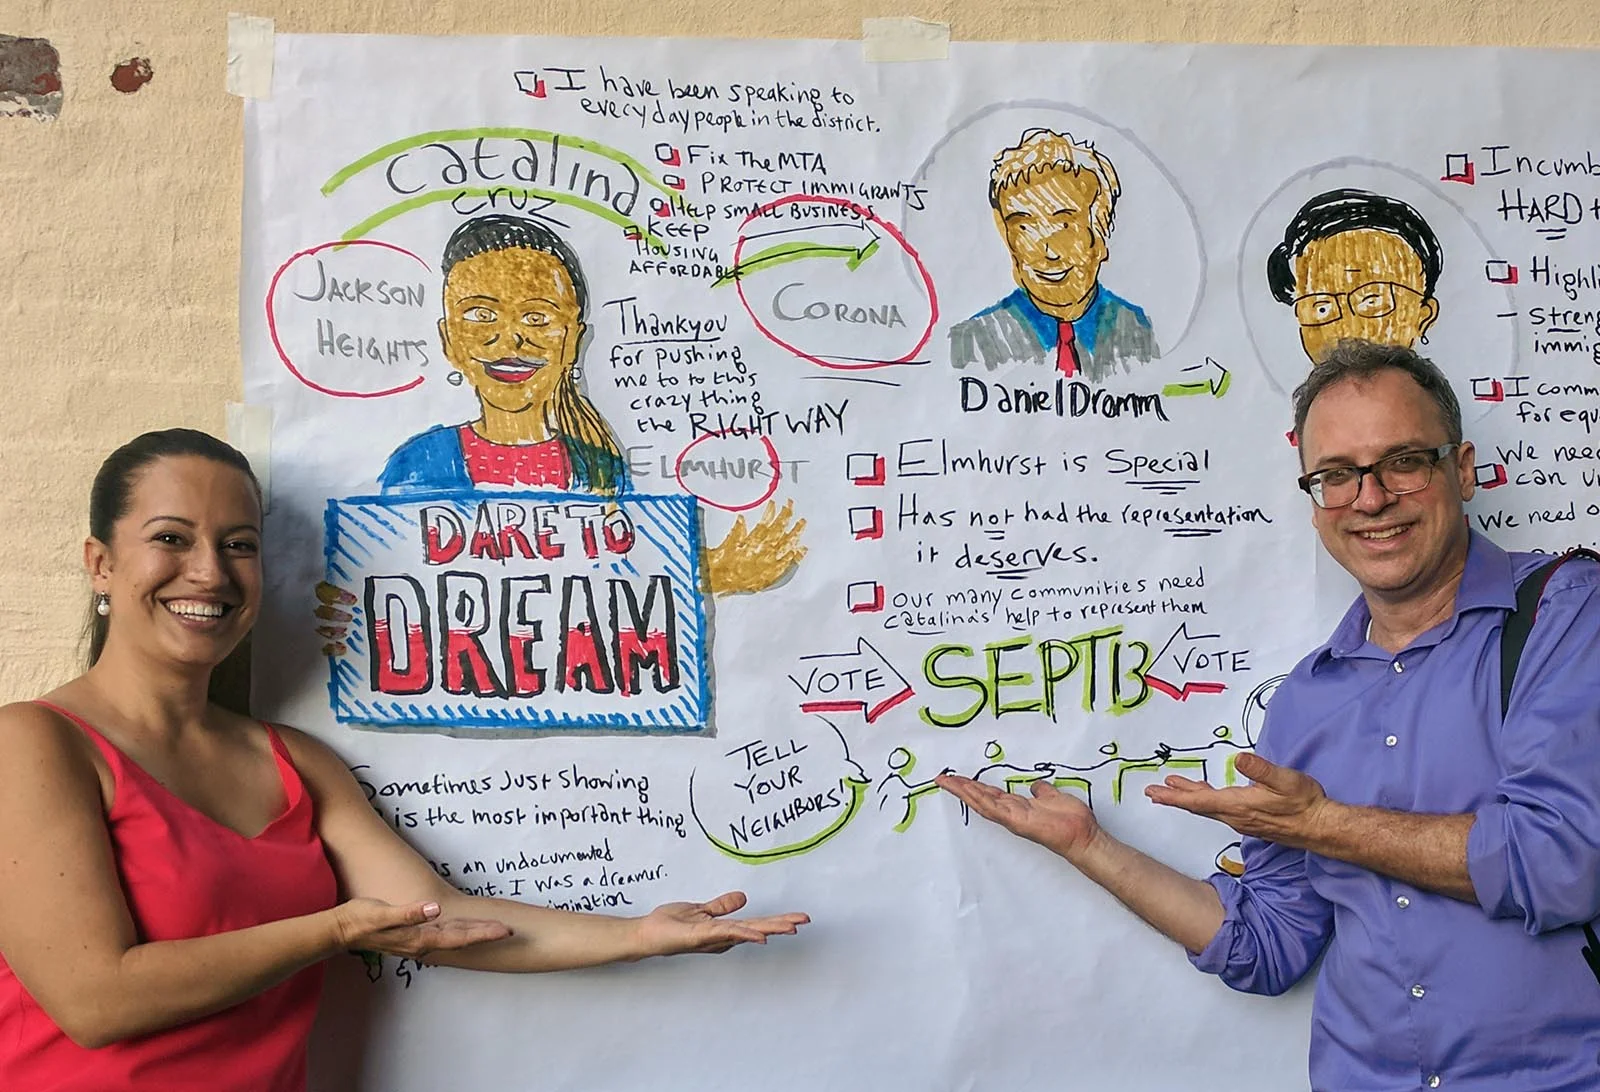 I have been speaking to
everyday people in the district.
catalina
cruz
Fix The MTA
PROTECT IMMIGRANTS
HELP SMALL BUSINESS
KEEP
HOUSING
AFFORDABLE
JACKSON
HEIGHTS
CORONA
Thankyou
for pushing
me to to this
crazy thing
the RIGHT WAY
ELMHURST
DARE TO
DREAM
Daniel Dromm
Elmhurst is Special
Has not had the representation
it deserves.
our many communities need
catalina's help to represent them
VOTE
SEPT 13
VOTE
TELL
YOUR
NEIGHBORS!
Sometimes Just Showing
is the most important thing
as an undocumented
I was a dreamer.
Incumb
HARD
Highli
- Streng
immig
I comm
for equ
We need
can un
We need o